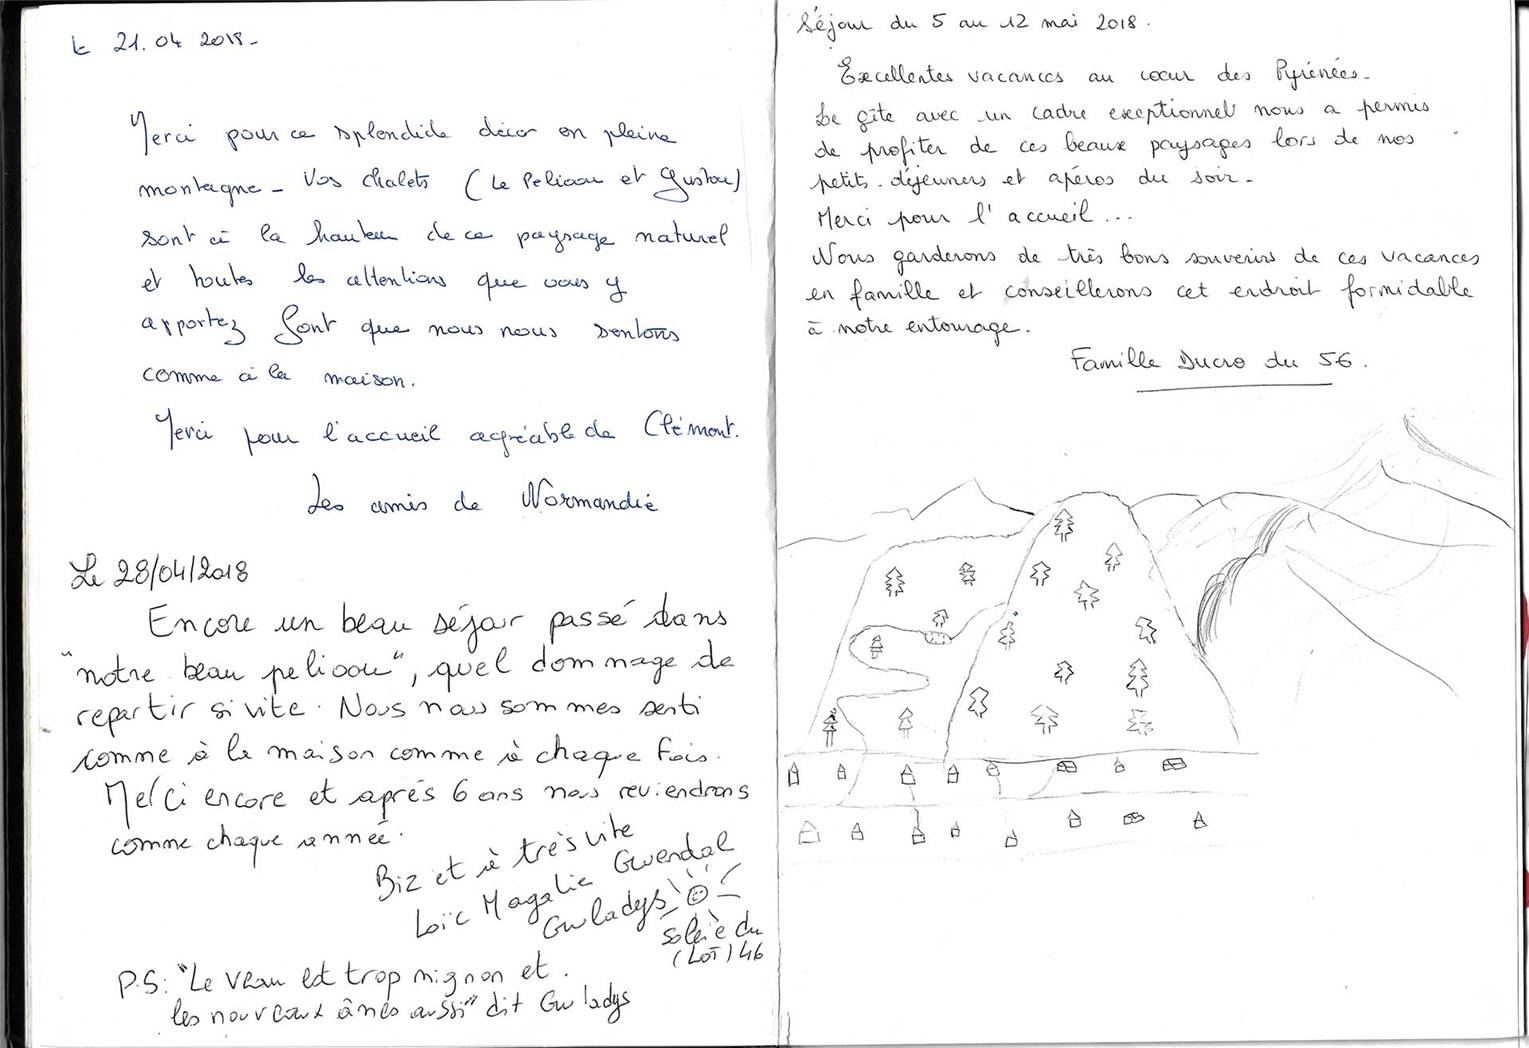 Le 21.04 2018-
Merci pour ce splendide décor en pleine
montagne - Vos chalets (Le Pelicou et Gustou)
sont à la hauteur de ce paysage naturel
et toutes les attentions que vous y
apportez font que nous nous sentons
comme à la maison.
Merci pour l'accueil agréable de Clément.
Les amis de Normandie
Le 28/04/2018
Encore un beau séjour passé dans
"notre beau pelicou", quel dommage de
repartir si vite. Nous nous sommes senti
comme à la maison comme à chaque fois.
Merci encore et après 6 ans nous reviendrons
comme chaque année.
Biz et à très vite
Loïc Magalie Gwendal
Gwladys
soleie du
(Lot) 46
P.S: "Le veau est trop mignon et
les nouveaux ânes aussi" dit Gwladys
Séjour du 5 au 12 mai 2018.
Excellentes vacances au cœur des Pyrénées-
Le gîte avec un cadre exceptionnel nous a permis
de profiter de ces beaux paysages lors de nos
petits-déjeuners et apéros du soir-
Merci pour l'accueil...
Nous garderons de très bons souvenirs de ces vacances
en famille et conseillerons cet endroit formidable
à notre entourage.
Famille Ducro du 56.